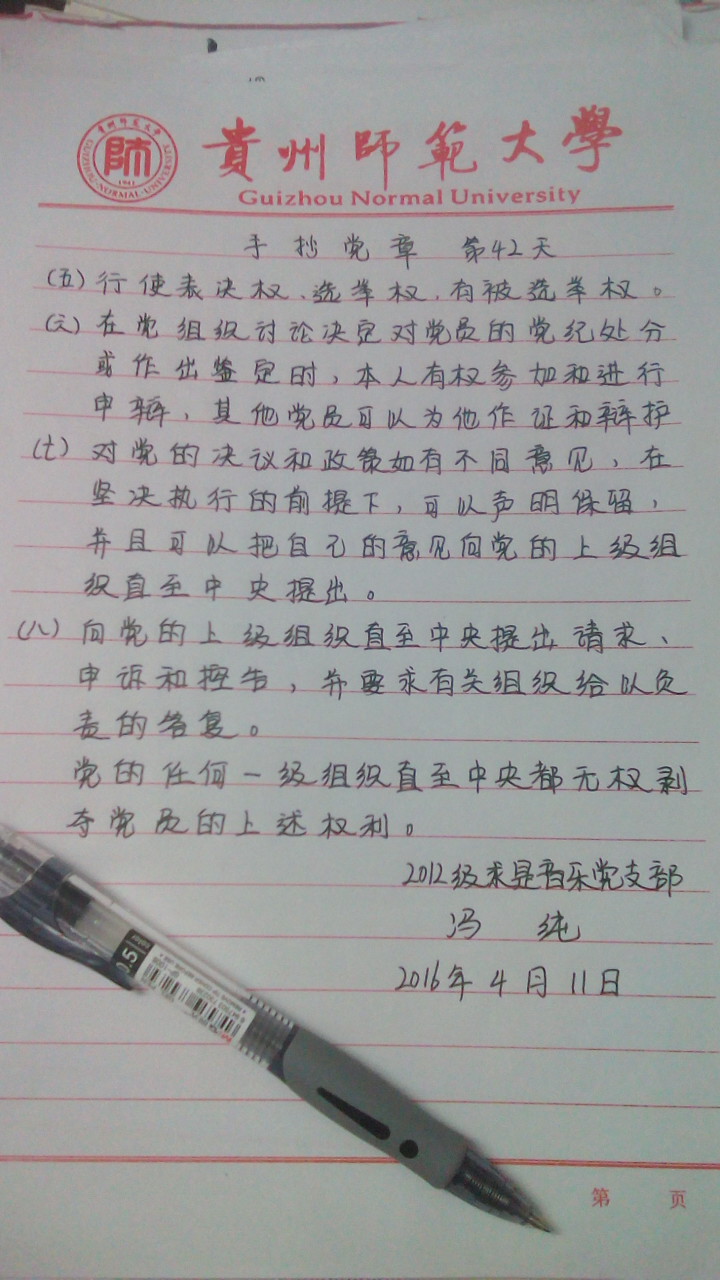 貴州師範大學
Guizhou Normal University
手抄党章 第42天
(五)行使表决权、选举权,有被选举权。
(六)在党组织讨论决定对党员的党纪处分
或作出鉴定时,本人有权参加和进行
申辩,其他党员可以为他作证和辩护
(七)对党的决议和政策如有不同意见,在
坚决执行的前提下,可以声明保留,
并且可以把自己的意见向党的上级组
织直至中央提出。
(八)向党的上级组织直至中央提出请求、
申诉和控告,并要求有关组织给以负
责的答复。
党的任何一级组织直至中央都无权剥
夺党员的上述权利。
2012级求是音乐党支部
冯 纯
2016年4月11日
0.5
第 页